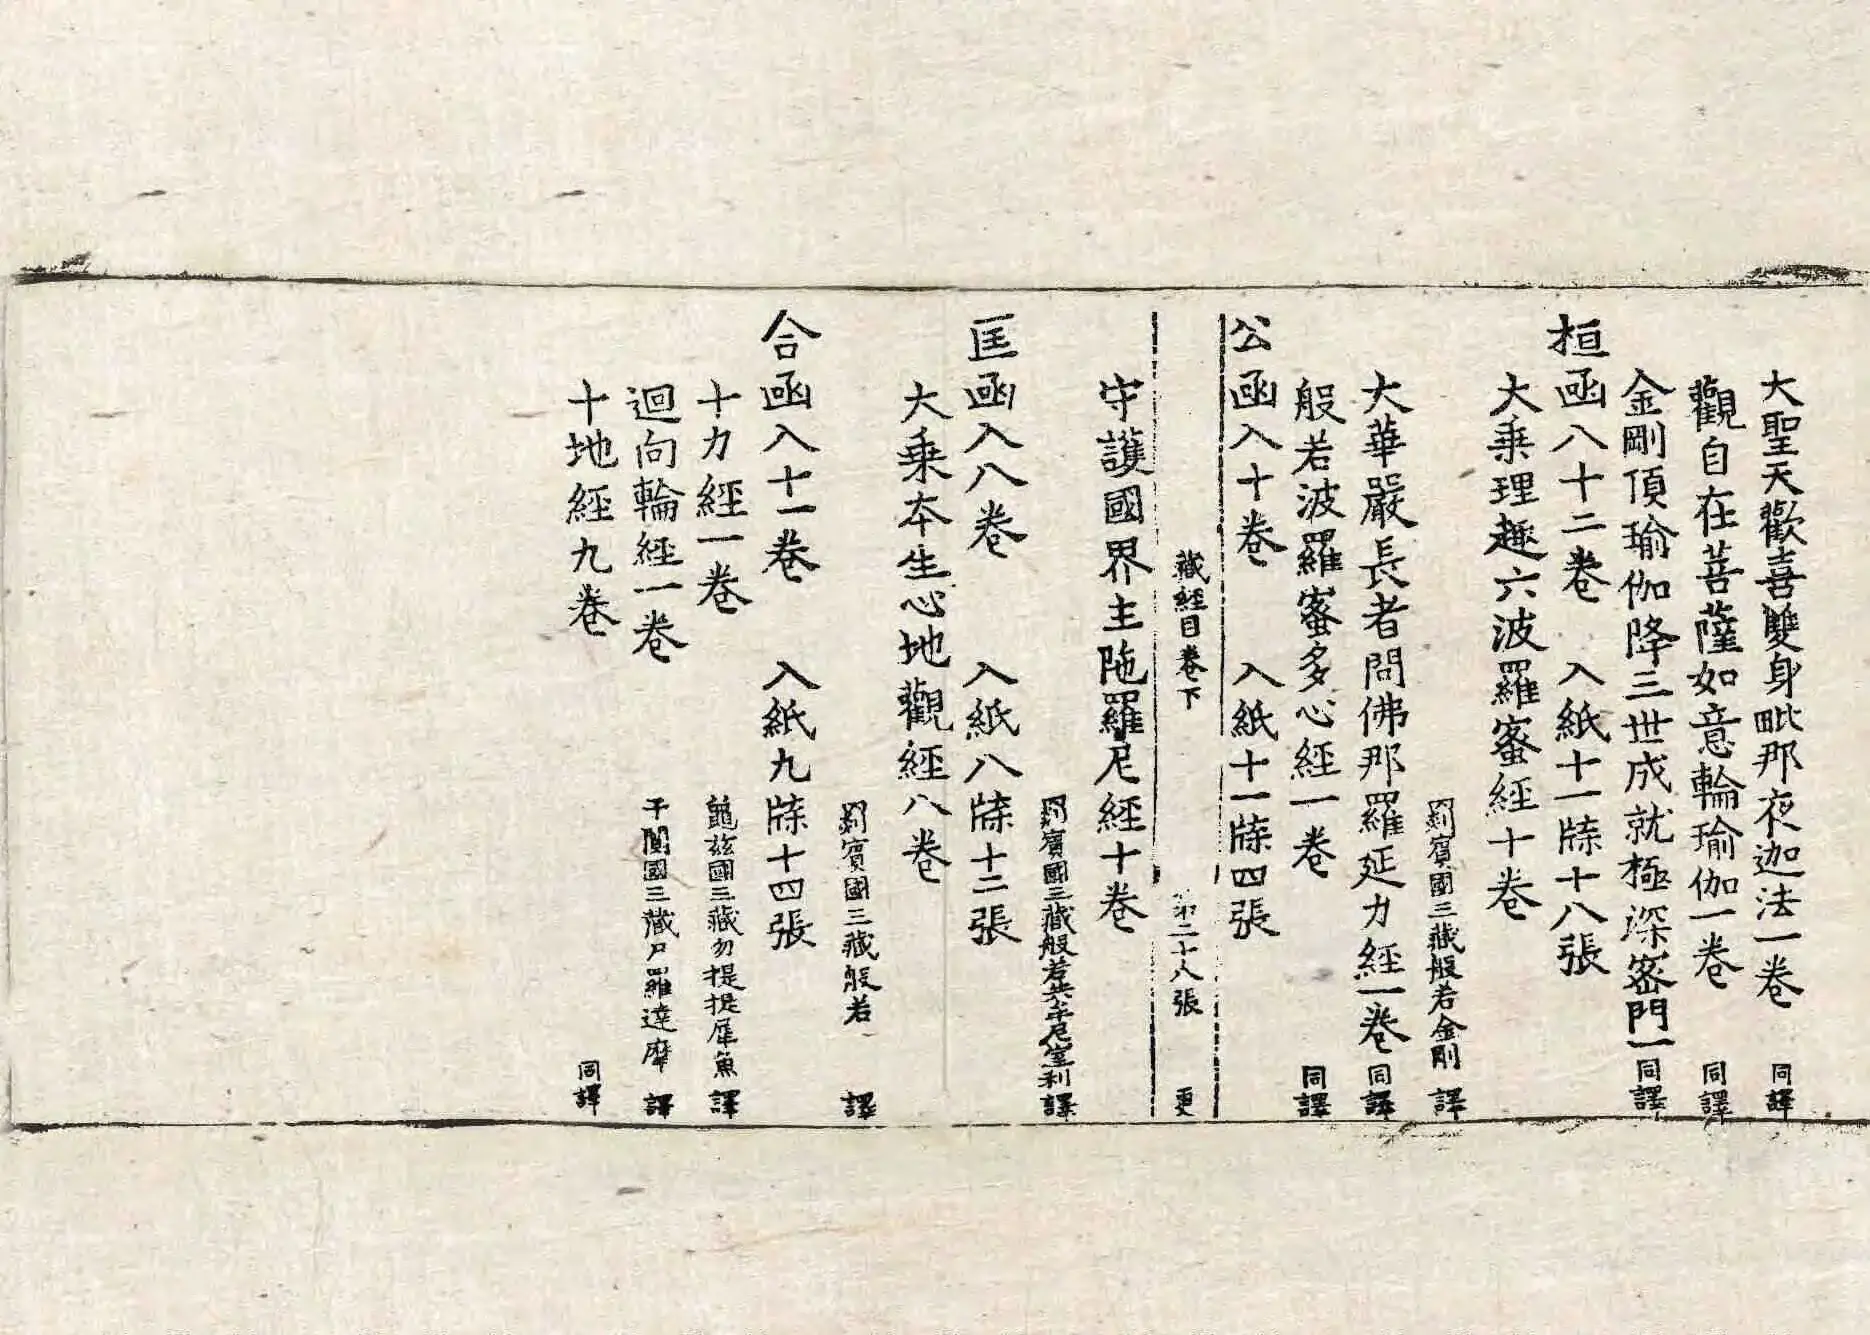 大聖天歡喜雙身毗那夜迦法一卷 同譯
觀自在菩薩如意輪瑜伽一卷 同譯
金剛頂瑜伽降三世成就極深密門一 同譯
桓函入十二卷 入紙十一牒十八張
大乘理趣六波羅蜜經十卷
罽賓國三藏般若金剛 譯
大華嚴長者問佛那羅延力經一卷 同譯
般若波羅蜜多心經一卷 同譯
公函入十卷 入紙十一牒四張
藏經目卷下 第二十八張 更
守護國界主陁羅尼經十卷
罽賓國三藏般若共牟尼室利譯
匡函入八卷 入紙八牒十二張
大乘本生心地觀經八卷
罽賓國三藏般若 譯
合函入十一卷 入紙九牒十四張
十力經一卷 龜茲國三藏勿提提犀魚 譯
迴向輪經一卷 于闐國三藏尸羅達摩 譯
十地經九卷 同譯